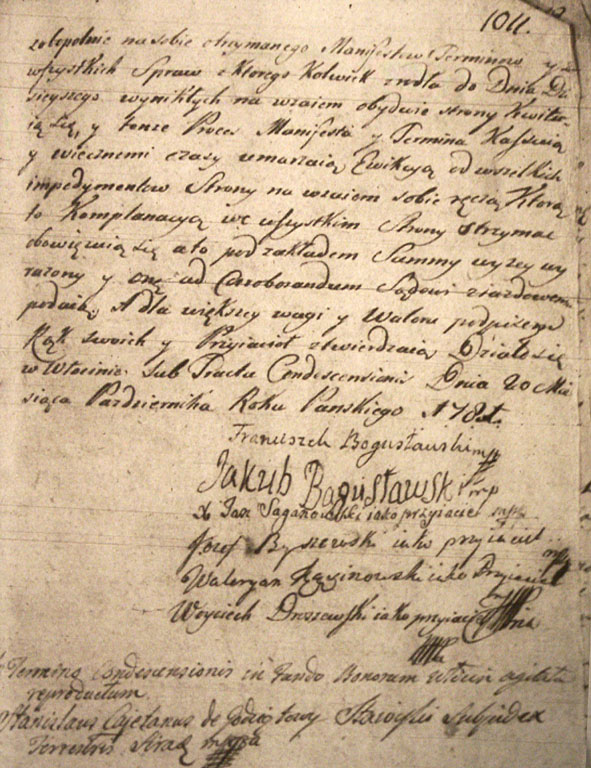 1011.
zobopolnie na sobie otrzymanego Manifestow Terminow y ze
wszystkich Spraw z ktorego Kolwiek zrzodla do Dnia Dzi
sieyszego wynikłych na wzaiem obydwie strony Kwitu-
ią się, y tenże Proces Manifesta y Termina Kassuią
y wiecznemi czasy umarzaią Ewikcyą od wszelkich
impedymentow Strony na wzaiem sobie ręczą Którą
to Komplanacyą we wszystkim Strony otrzymac
obowięzuią się a to pod zakładem Summy wyżey wy
rażony y onę ad Coroborandum Sądowi ziazdowem
podaią, A dla większey wagi y Waloru podpisem
Rąk swoich y Przyiacioł ztwierdzaią Działo się
w Włocinie sub Tractu Condescensionis Dnia 20 Mie
siąca Pazdziernika Roku Panskiego
Franciszek Bogusławski mp
Jakub Bogusławski mp
X Jan Saganowski iako przyiaciel mp
Jozef Byszewski iako przyiaciel mp
Waleryan iako Przyiaciel
Woyciech Droszewski iako przyiaciel
Termino Condescensionis in fundo Bonorum Włocin agitato
reproductum.
Stanislaus Cajetanus de Subjudex
Terrestris Sirad mppa